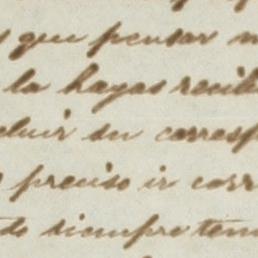 que pensar
la hayas recib
cluir su corresp
preciso ir corr
do siempre tem